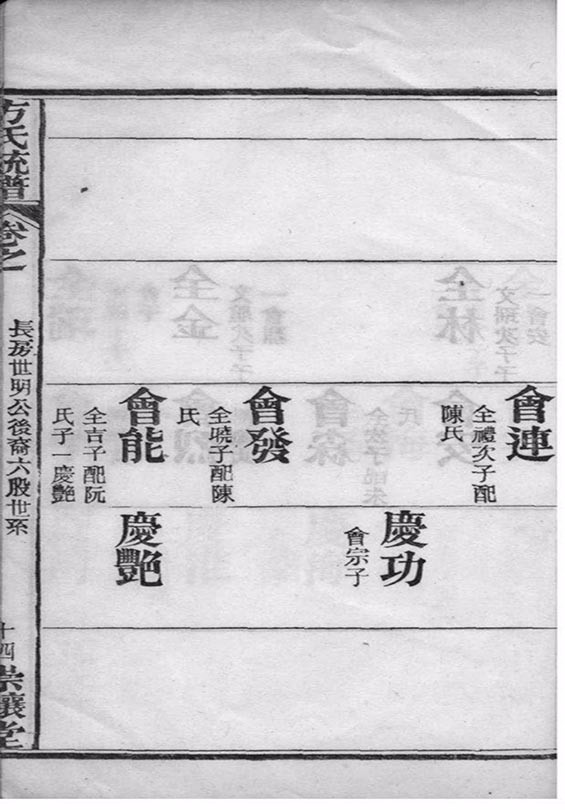 會連
全禮次子配
陳氏
會發
全曉子配陳
氏
會能
全吉子配阮
氏子一慶艷
慶功
會宗子
慶艷
方氏統譜
卷之
長房世明公後裔六股世系
十四
崇讓堂